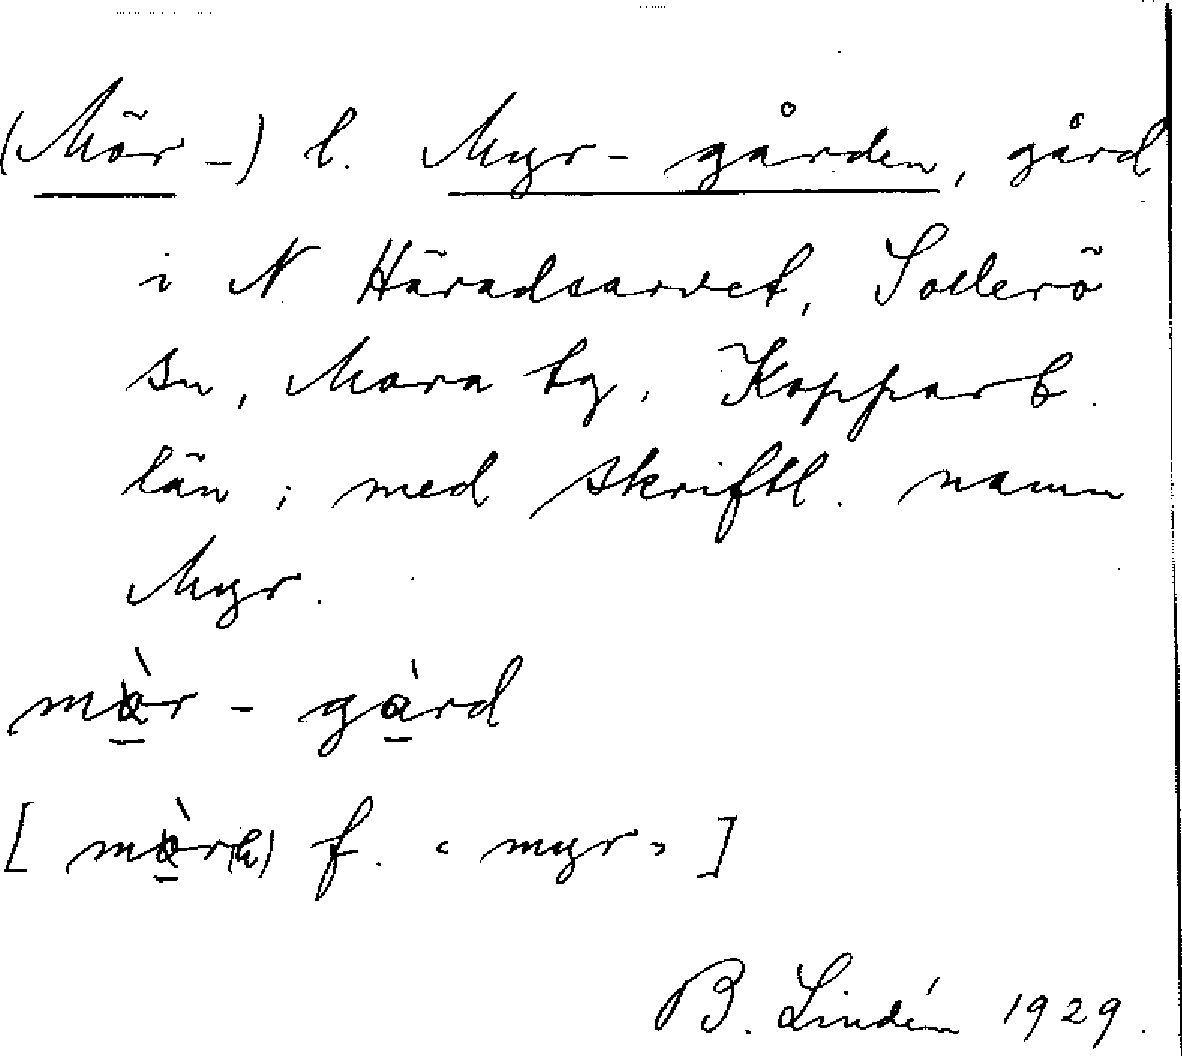 (Mör-) l. Myr-gården, gård
i N Häradsarvet, Sollerö
sn, Mora tg, Kopparb.
län; med skriftl. namn
Myr.
[ f. "myr" ]
B. Lindén 1929.